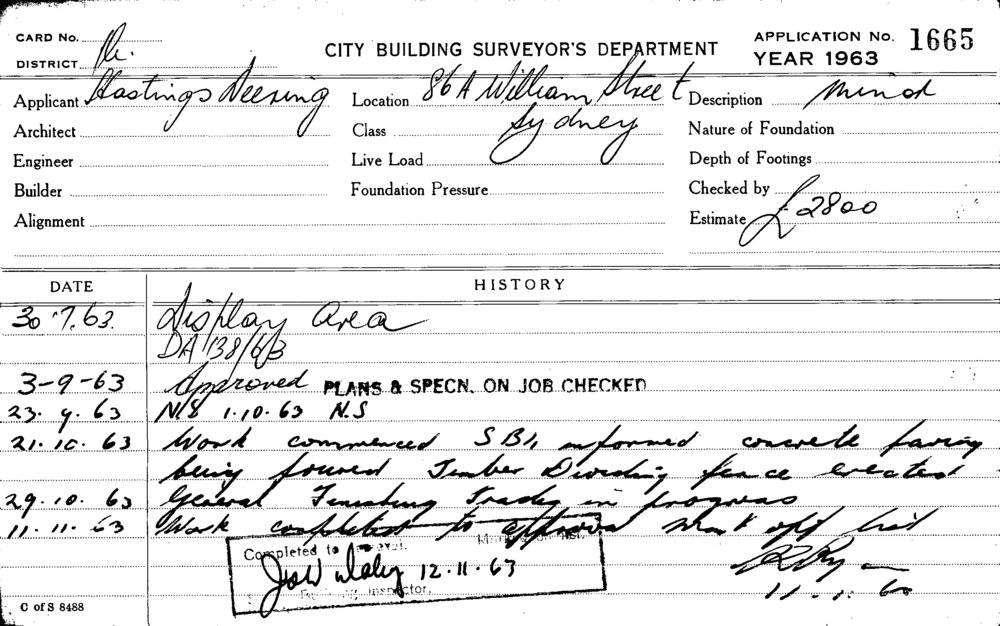 CARD No.
DISTRICT
CITY BUILDING SURVEYOR'S DEPARTMENT
APPLICATION No. 1665
YEAR 1963
Applicant Hastings Deering
Location 86A William Street
Sydney
Description Minor
Architect
Class
Nature of Foundation
Engineer
Live Load
Depth of Footings
Builder
Foundation Pressure
Checked by
Alignment
Estimate £2800
DATE HISTORY
30.7.63. Display Area
DA 138/63
3-9-63 Approved PLANS & SPECN. ON JOB CHECKED
23.9.63 N.S 1.10.63 N.S
21.10.63 Work commenced informed concrete paving
being poured Timber Dividing fence erected
29.10.63 General Finishing Trades in progress
11.11.63 Work completed to approval off list
Completed to
12.11.63
Inspector.
C of S 8488